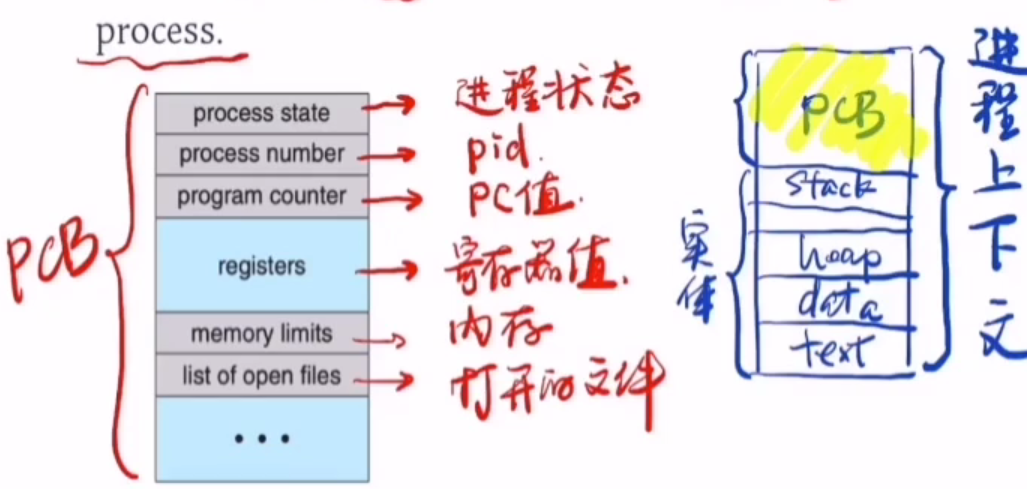 process.
PCB
process state
进程状态
process number
pid.
program counter
PC值.
registers
寄存器值.
memory limits
内存
list of open files
打开的文件
• • •
PCB
stack
heap
data
text
实体
进程上下文